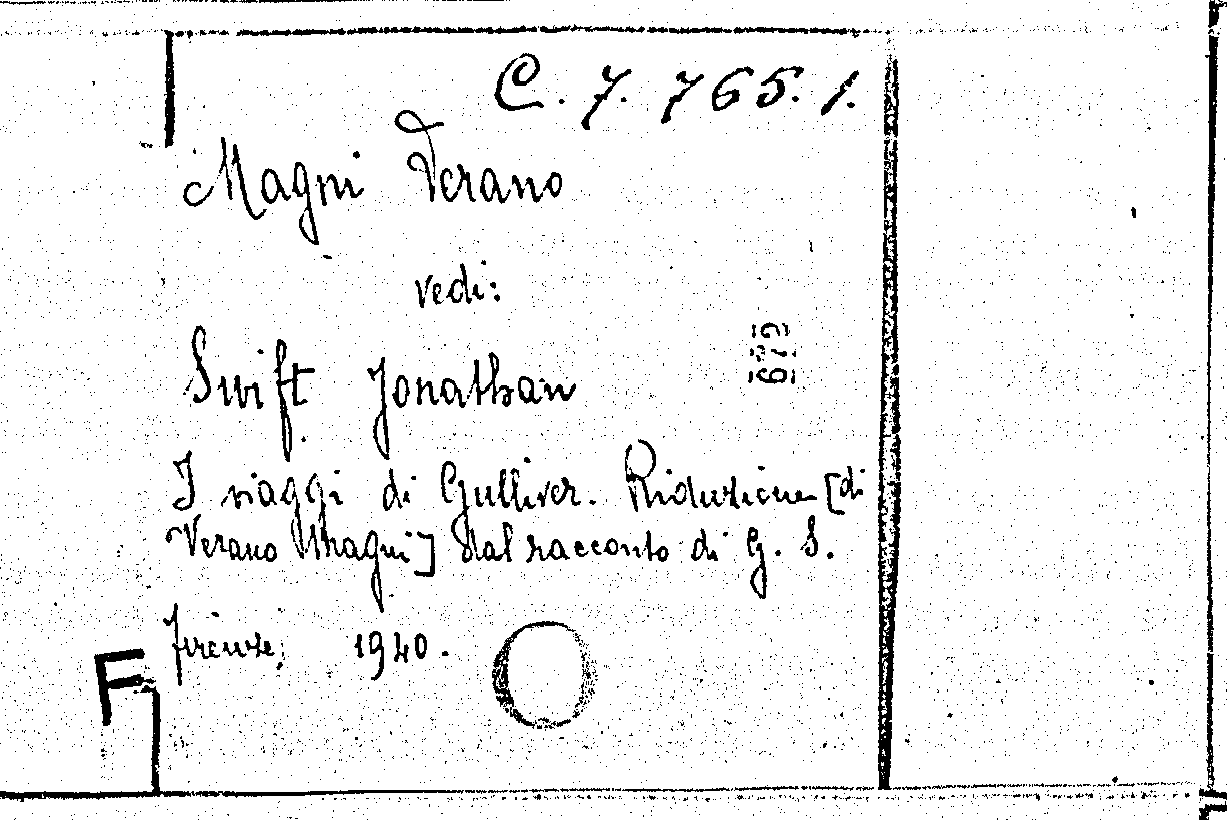 C. 7. 765. 1.
Magni Verano
vedi:
Swift Jonathan
673
I viaggi di Gulliver. Riduzione [di
Verano Magni] dal racconto di G. S.
Firenze, 1940.
F